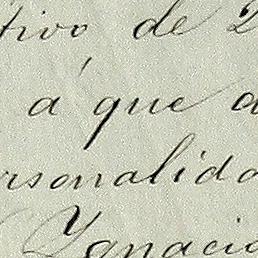 tivo de 2
á que a
rsonalida
Ygnacio